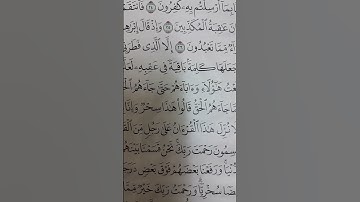 بِمَآ أُرْسِلْتُم بِهِۦ كَٰفِرُونَ ٢٤ فَٱنتَقَمْ
نَ عَٰقِبَةُ ٱلْمُكَذِّبِينَ ٢٥ وَإِذْ قَالَ إِبْرَٰهِ
ءٌ مِّمَّا تَعْبُدُونَ ٢٦ إِلَّا ٱلَّذِى فَطَرَنِى
جَعَلَهَا كَلِمَةًۢ بَاقِيَةً فِى عَقِبِهِۦ لَعَلَّ
تُ هَٰٓؤُلَآءِ وَءَابَآءَهُمْ حَتَّىٰ جَآءَهُمُ
مَّا جَآءَهُمُ ٱلْحَقُّ قَالُوا۟ هَٰذَا سِحْرٌ وَإِنَّا
لَا نُزِّلَ هَٰذَا ٱلْقُرْءَانُ عَلَىٰ رَجُلٍ مِّنَ ٱلْقَ
سِمُونَ رَحْمَتَ رَبِّكَ نَحْنُ قَسَمْنَا بَيْنَهُم
دُّنْيَا وَرَفَعْنَا بَعْضَهُمْ فَوْقَ بَعْضٍ دَرَجَ
ضًا سُخْرِيًّا وَرَحْمَتُ رَبِّكَ خَيْرٌ مِّمَّا